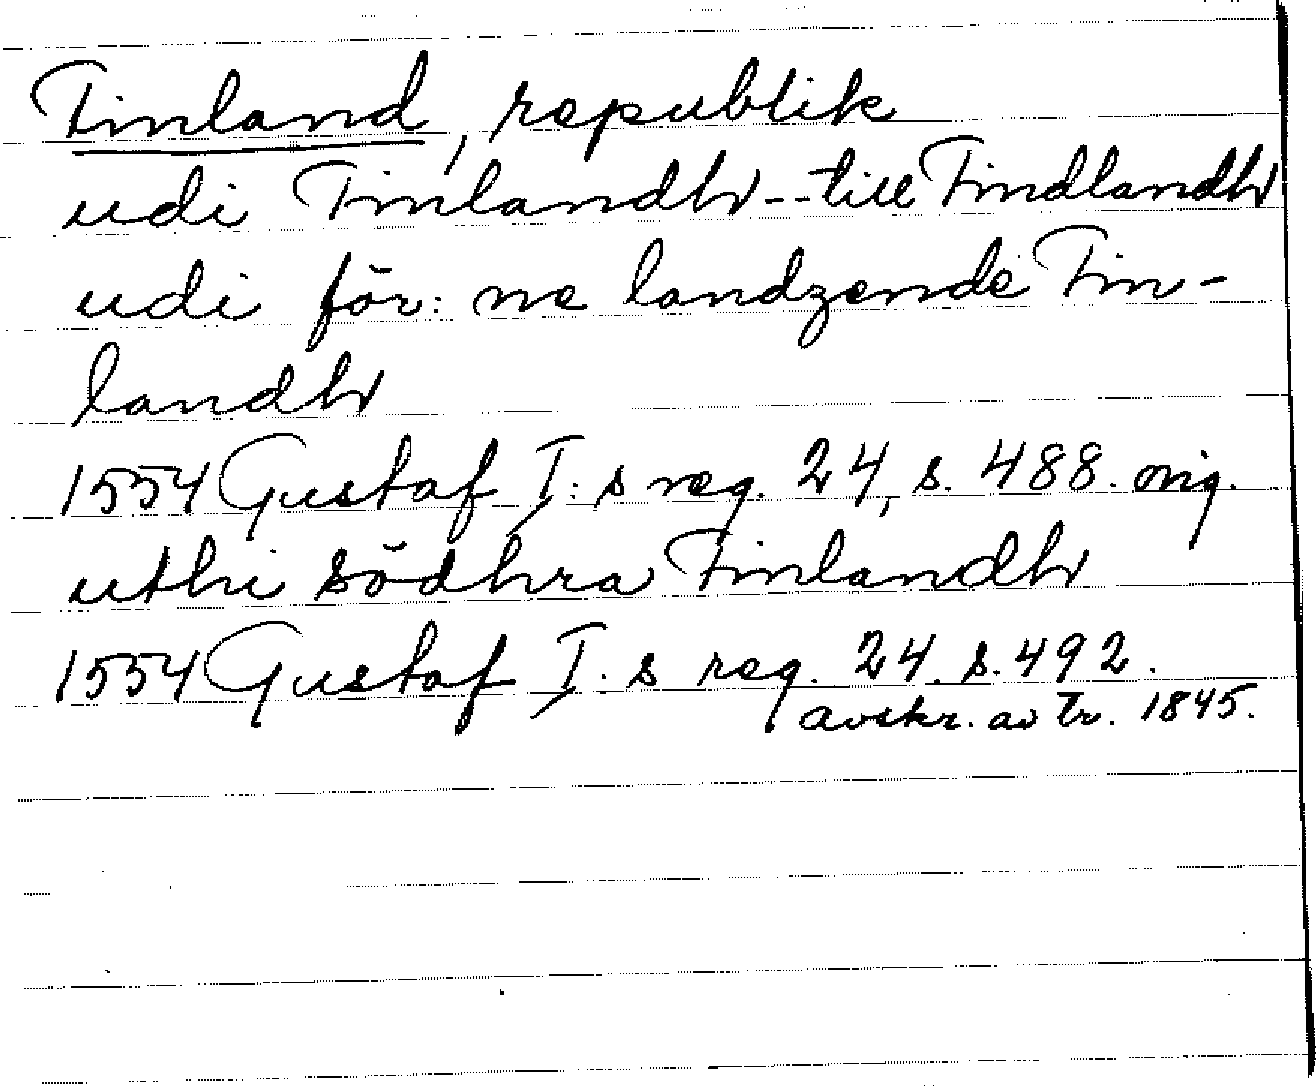 Finland, republik
udi Finlandh -- till Findlandh
udi för: ne landzende Fin-
landh
1554 Gustaf I: s reg. 24, s. 488. orig.
uthi södhra Finlandh
1554 Gustaf I. s reg. 24. s. 492.
avskr. av tr. 1845.